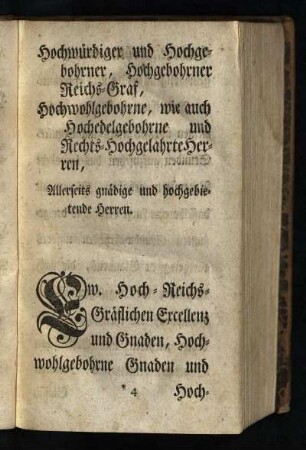 Hochwürdiger und Hochge-
bohrner, Hochgebohrner
Reichs-Graf,
Hochwohlgebohrne, wie auch
Hochedelgebohrne und
Rechts-Hochgelahrte Her-
ren,
Allerseits gnädige und hochgebie-
tende Herren.
Ew. Hoch-Reichs-
Gräflichen Excellenz
und Gnaden, Hoch-
wohlgebohrne Gnaden und
* 4 Hoch-